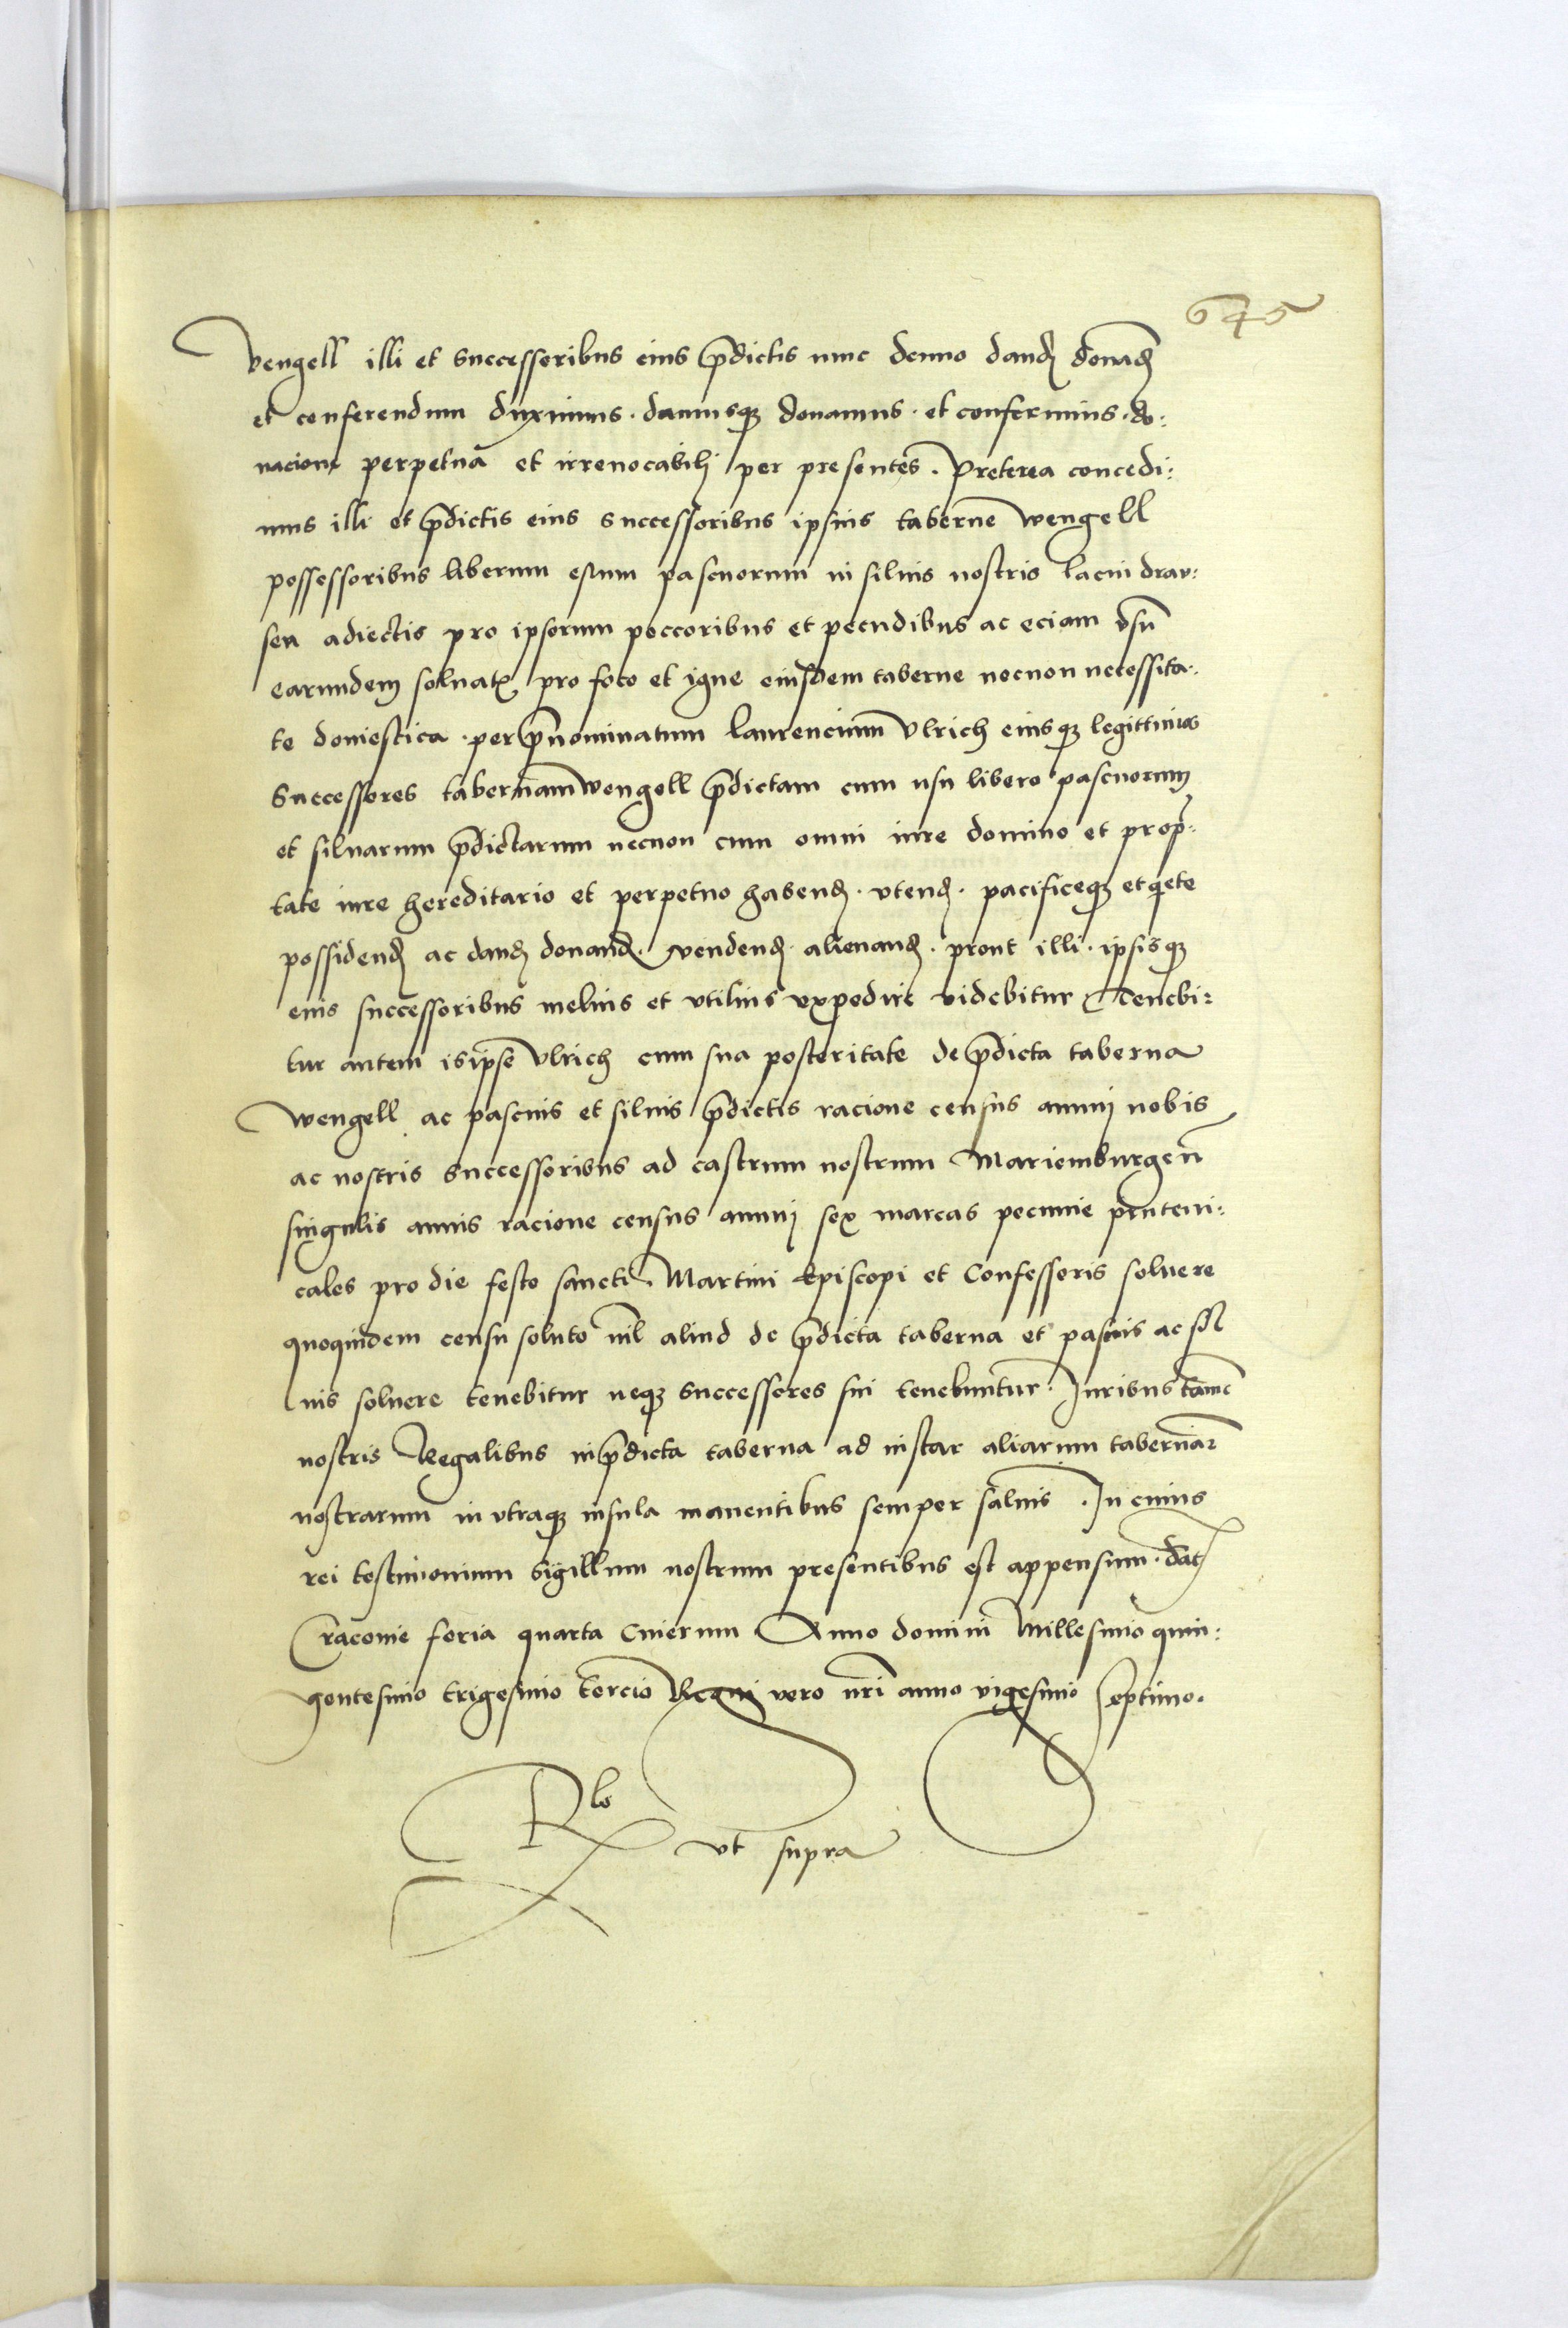 645
Vengell illi et successoribus eius p̄dictis nunc denuo dand donād
et conferendum duximus . damusqꝫ donamus . et conferimus . do:
nacione perpetua et irrevocabili per presentes . Preterea concedi:
mus illi et p̄dictis eius successoribus ipsius taberne Wengell
possessoribus liberum esum pascuorum in silvis nostris lacui drau:
sen adiectis pro ipsorum peccoribus et pecudibus ac eciam vsū
earundem silvarꝫ pro foco et igne eiusdem taberne necnon necessita:
te domestica . per p̄nominatum laurencium Vlrich eiusqꝫ legittimos
successores tabernam wengell p̄dictam cum usu libero pascuorum
et silvarum p̄dictarum necnon cum omni iure dominio et prop̄:
tate iure hereditario et perpetuo habend . vtend . pacificeqꝫ et qete
possidend ac dand donand . vendend . alienand . prout illi . ipsisqꝫ
eius successoribus melius et vtilius expedire videbitur Tenebi:
tur autem is ipse Vlrich cum sua posteritate de p̄dicta taberna
Wengell ac pascuis et silvis p̄dictis racione census annui nobis
ac nostris successoribus ad castrum nostrum Mariemburgeñ
singulis annis racione census annui sex marcas pecunie pruteni:
cales pro die festo sancti Martini Episcopi et Confessoris solvere
quoquidem censu soluto nil̄ aliud de p̄dicta taberna et pascuis ac sil
vis solvere tenebitur neqꝫ successores sui tenebuntur . Juribus tamē
nostris Regalibus in p̄dicta taberna ad instar aliarum tabernaꝝ
nostrarum in vtraqꝫ insula manentibus semper salvis . In cuius
rei testimonium Sigillum nostrum presentibus est appensum . dat
Cracovie feria quarta Cinerum Anno domini Millesimo quin:
gentesimo trigesimo tercio Regni vero nr̄i anno vigesimo septimo .
Rlo
vt supra